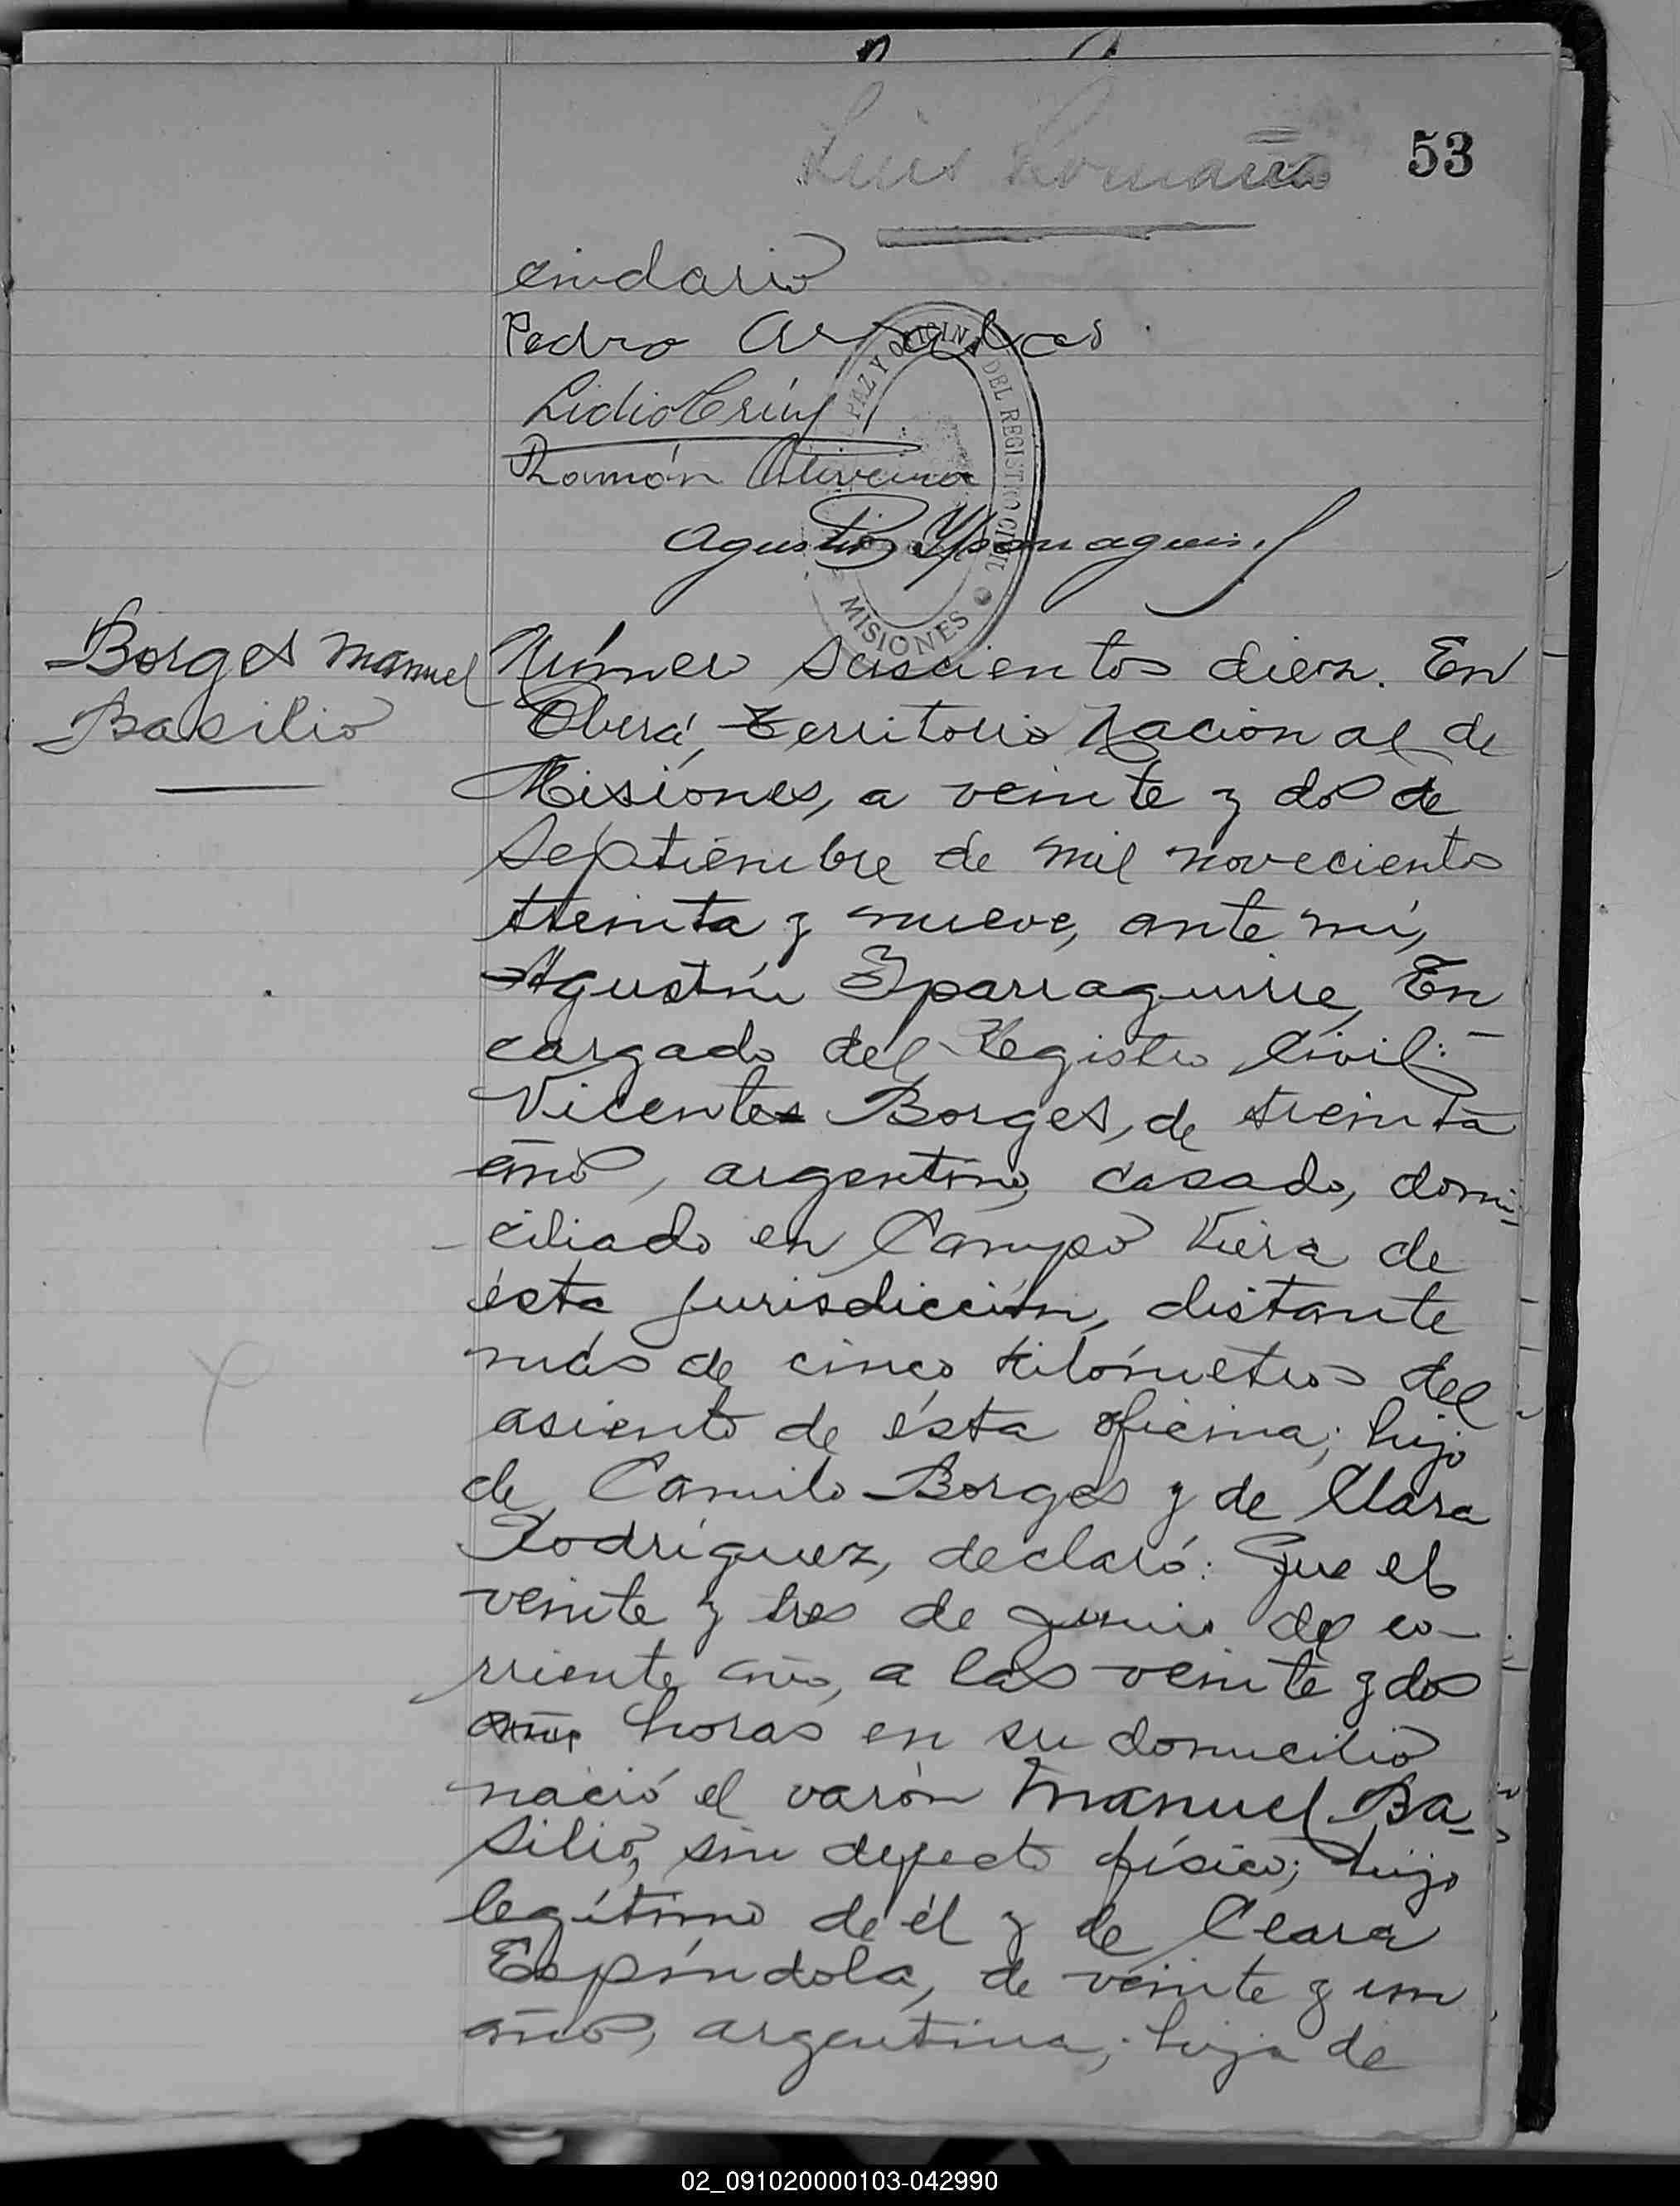 Luis Romaña
53
cindario
Pedro
Lidio
Ramón Oliveira
Agustín Yparraguirre
PAZ Y OFICINA DEL REGISTRO CIVIL
MISIONES
Borges Manuel
Basilio
Número seiscientos diez. En
Oberá, Territorio Nacional de
Misiones, a veinte y dos de
Septiembre de mil novecientos
treinta y nueve, ante mí,
Agustín Yparraguirre, En
cargado del Registro Civil:
Vicente Borges, de treinta
años, argentino, casado, domi-
ciliado en Campo Viera de
ésta jurisdicción, distante
más de cinco kilómetros del
asiento de ésta oficina; hijo
de Camilo Borges y de Clara
Rodríguez, declaró: Que el
veinte y tres de junio del co-
rriente año, a las veinte y dos
horas en su domicilio
nació el varón Manuel Ba-
silio, sin defecto físico; hijo
legítimo de él y de Clara
Espíndola, de veinte y un
años, argentina; hija de
02_091020000103-042990